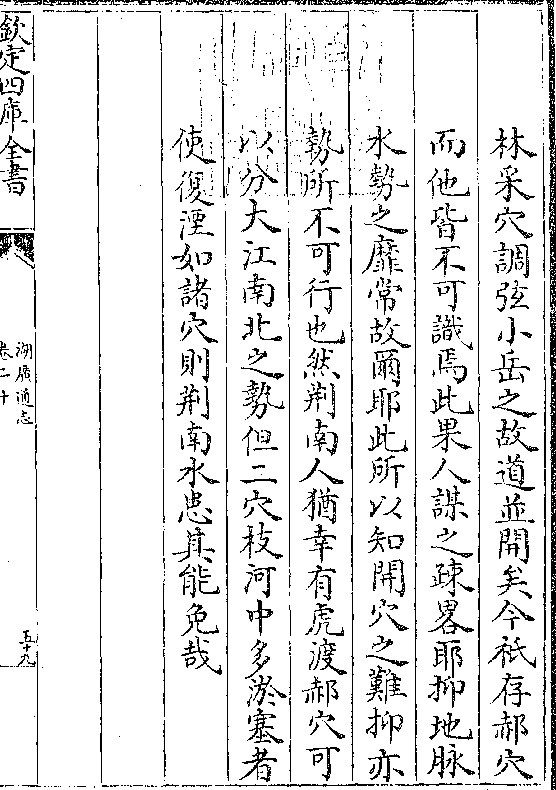 林采穴調弦小岳之故道並開矣今祗存郝穴
而他皆不可識焉此果人謀之疎畧耶抑地脉
水勢之靡常故爾耶此所以知開穴之難抑亦
勢所不可行也然荆南人猶幸有虎渡郝穴可
以分大江南北之勢但二穴枝河中多淤塞者
使復湮如諸穴則荆南水患其能免哉
欽定四庫全書
湖廣通志
卷二十
五十九